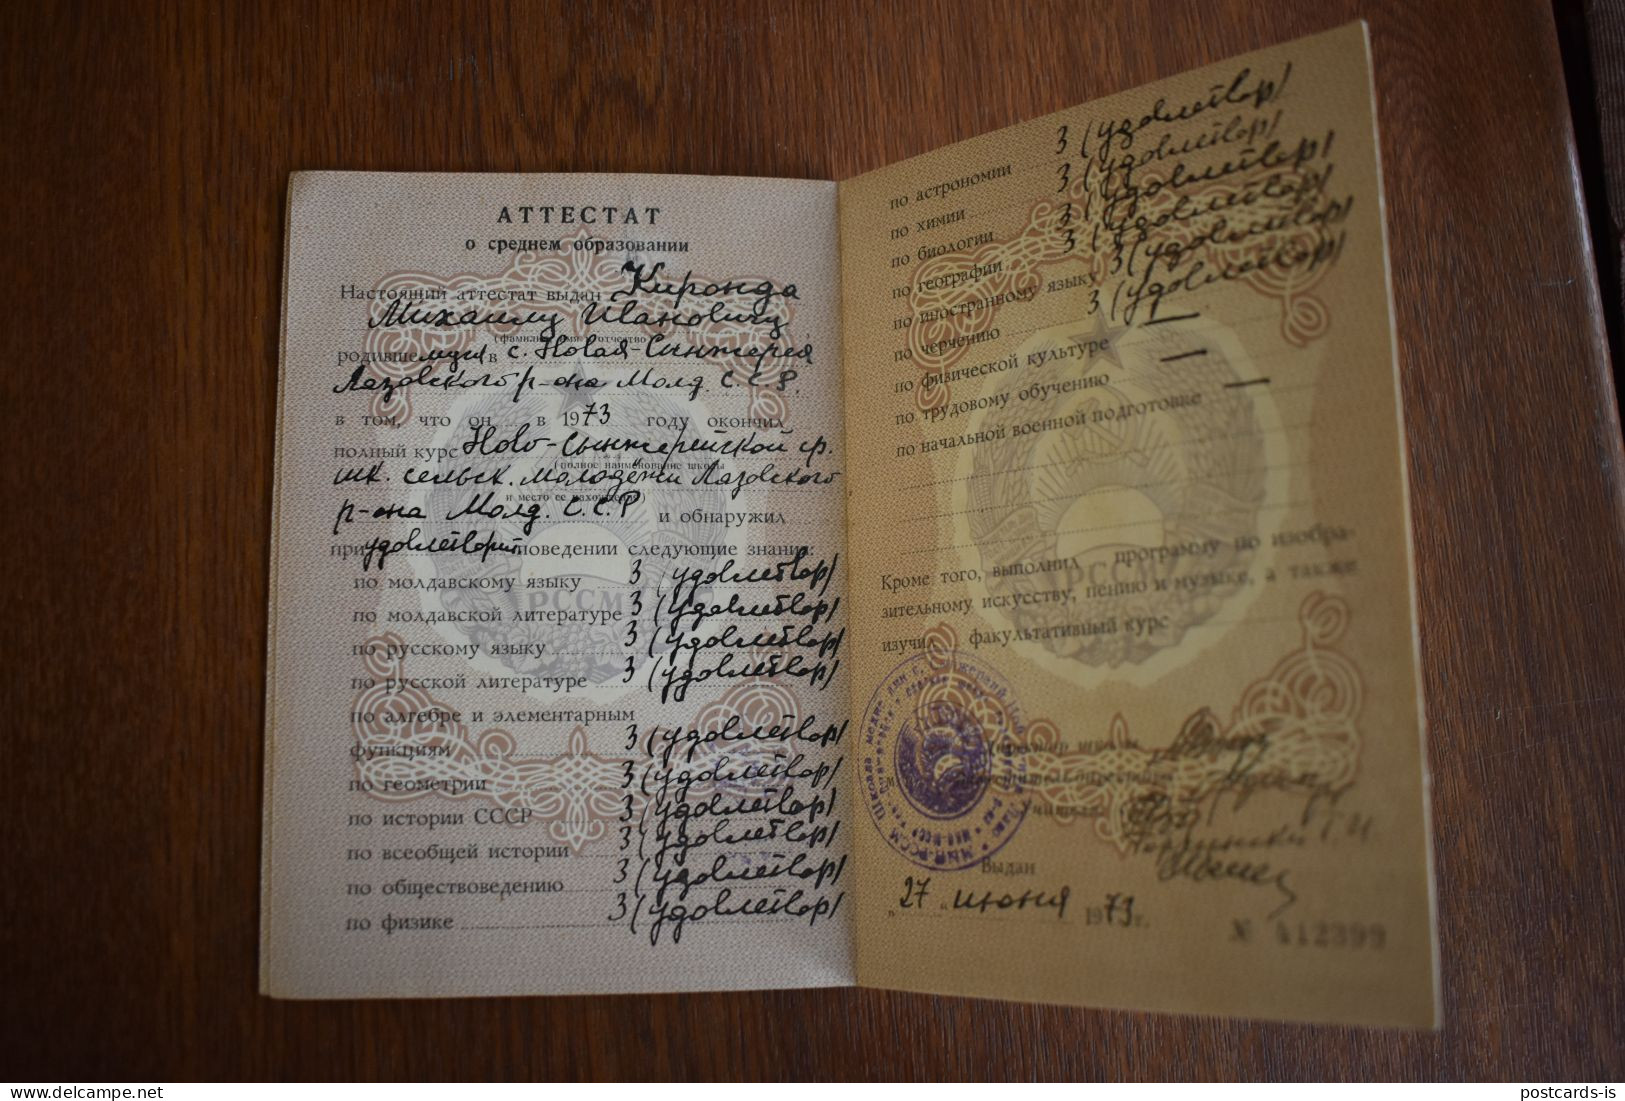 АТТЕСТАТ
о среднем образовании
Настоящий аттестат выдан Киронда
Михаилу Ивановичу
(фамилия, имя и отчество)
родившемуся в с. Новая-Сынжерея
Лазовского р-она Молд. С.С.Р.
в том, что он в 1973 году окончил
полный курс Ново-Сынжерейской ср.
(полное наименование школы
шк. сельск. молодёжи Лазовского
и место ее нахождения)
р-она Молд. С.С.Р и обнаружил
при удовлетворит. поведении следующие знания:
по молдавскому языку 3 (удовлетвор)
по молдавской литературе 3 (удовлетвор)
по русскому языку 3 (удовлетвор)
по русской литературе 3 (удовлетвор)
по алгебре и элементарным
функциям 3 (удовлетвор)
по геометрии 3 (удовлетвор)
по истории СССР 3 (удовлетвор)
по всеобщей истории 3 (удовлетвор)
по обществоведению 3 (удовлетвор)
по физике 3 (удовлетвор)
РССМ
по астрономии 3 (удовлетвор)
по химии 3 (удовлетвор)
по биологии 3 (удовлетвор)
по географии 3 (удовлетвор)
по иностранному языку 3 (удовлетвор)
по черчению 3 (удовлетвор)
по физической культуре —
по трудовому обучению —
по начальной военной подготовке —
Кроме того, выполнил программу по изобра-
зительному искусству, пению и музыке, а также
изучил факультативный курс
РССМ
Директор школы
Учителя
Выдан
"27" июня 1973 г.
№ 412399
postcards-is